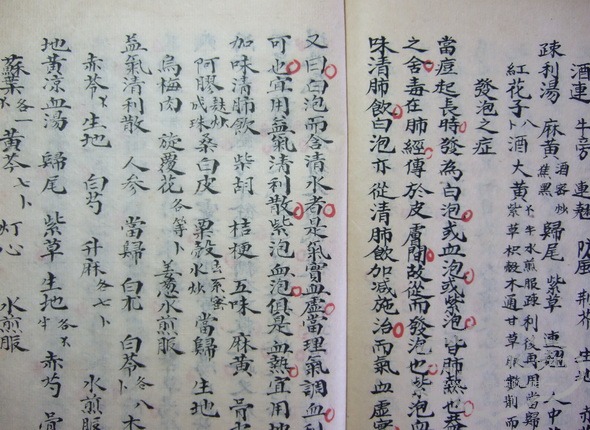 酒連 牛蒡 連翹 防風 荆芥 生地
疎利湯 麻黃 酒蜜炒焦黑 歸尾 紫草 連翹 人中
紅花子 八卜 酒大黃 牛 水煎服疎利後再用當歸紫草枳殼木通甘草服數劑而
發泡之症
當痘起長時發為白泡或血泡或紫泡皆肺熱也盖
之舍毒在肺經傳於皮膚間故從而發泡也紫泡血
味清肺飲白泡亦從清肺飲加減施治而氣血虛實
又曰白泡而含清水者是氣實血虛當理氣調血
可也宜用益氣清利散紫泡血泡俱是血熱宜用地
加味清肺飲 柴胡 桔梗 五味 麻黃 骨
阿膠 麩炒成珠 桑白皮 粟殼 水炒 當歸 生地
烏梅肉 旋覆花 各等卜 姜葱水煎服
益氣清利散 人參 當歸 白朮 白苓 各八卜 木
赤苓 生地 白芍 升麻 各七卜 水煎服
地黃涼血湯 歸尾 紫草 生地 各不 赤芍 骨
蘇葉 各不 黃芩 七卜 灯心 水煎服